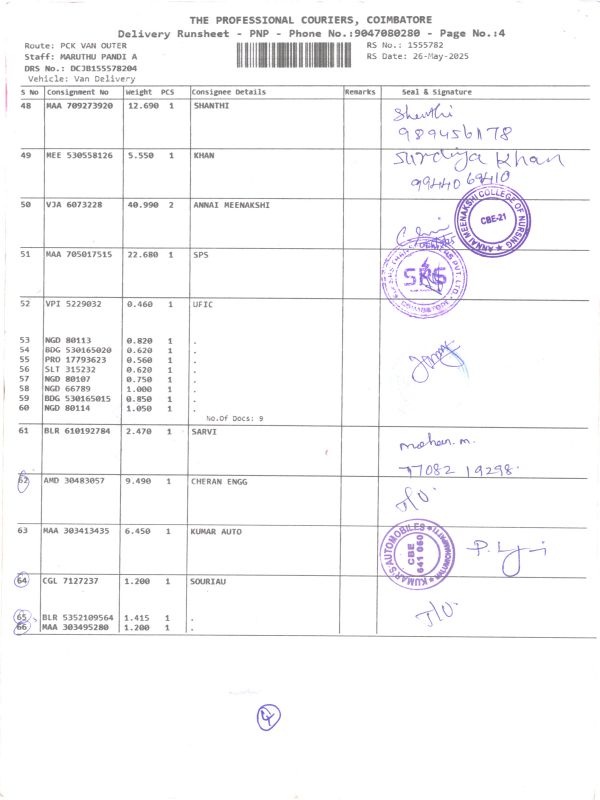 THE PROFESSIONAL COURIERS, COIMBATORE
Delivery Runsheet - PNP - Phone No.:9047080280 - Page No.:4
Route: PCK VAN OUTER RS No.: 1555782
Staff: MARUTHU PANDI A RS Date: 26-May-2025
DRS No.: DCJB155578204
Vehicle: Van Delivery
S No Consignment No Weight PCS Consignee Details Remarks Seal & Signature
48 MAA 709273920 12.690 1 SHANTHI Shanthi
49 MEE 530558126 5.550 1 KHAN Khan
99440 69410
50 VJA 6073228 40.990 2 ANNAI MEENAKSHI
ANNAI MEENAKSHI COLLEGE OF NURSING
CBE-21
51 MAA 705017515 22.680 1 SPS
COIMBATORE
52 VPI 5229032 0.460 1 UFIC
53 NGD 80113 0.820 1 .
54 BDG 530165020 0.620 1 .
55 PRO 17793623 0.560 1 .
56 SLT 315232 0.620 1 .
57 NGD 80107 0.750 1 .
58 NGD 66789 1.000 1 .
59 BDG 530165015 0.850 1 .
60 NGD 80114 1.050 1 .
No.Of Docs: 9
61 BLR 610192784 2.470 1 SARVI mohan. m.
77082 19298.
62 AMD 30483057 9.490 1 CHERAN ENGG
63 MAA 303413435 6.450 1 KUMAR AUTO
KUMAR'S AUTOMOBILES
CBE
641 050
64 CGL 7127237 1.200 1 SOURIAU
65 BLR 5352109564 1.415 1 .
66 MAA 303495280 1.200 1 .
4